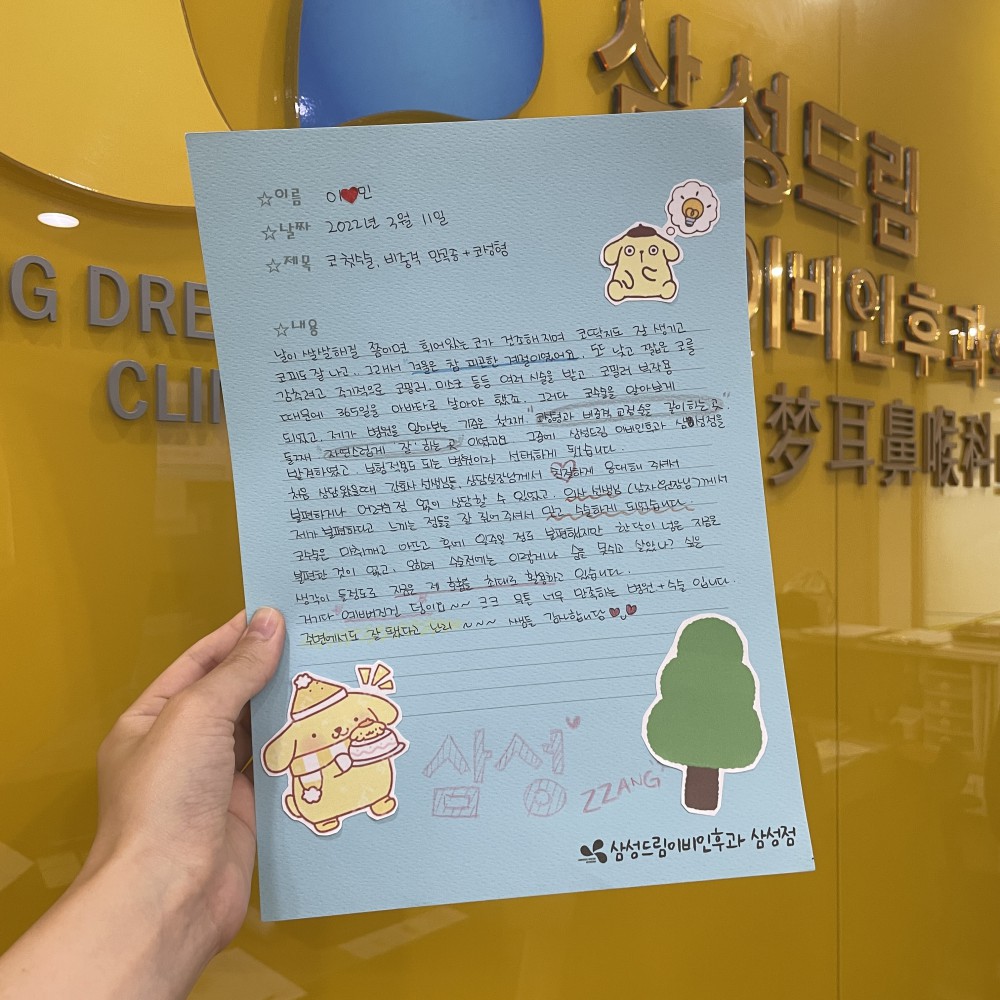 삼성드림
이비인후과
G DRE
CLIN
梦耳鼻喉科
☆이름 이♥민
☆날짜 2022년 3월 11일
☆제목 코 첫수술, 비중격 만곡증 + 코성형
☆내용
날이 쌀쌀해질 쯤이면 휘어있는 코가 건조해지며 코딱지도 잘 생기고
코피도 잘 나고.. 그래서 "겨울은 참 피곤한 계절이였어요. 또 낮고 짧은 코를
감추려고 주기적으로 코필러, 미스코 등등 여러 시술을 받고 코필러 부작용
때문에 365일을 아바타로 살아야 했죠. 그러다 코수술을 알아보게
되었고, 제가 병원을 알아보는 기준은 첫째, "코성형과 비중격 교정술을 같이하는 곳"
둘째 "자연스럽게 잘 하는 곳" 이였고요 그중에 삼성드림 이비인후과 삼성점을
발견하였고 보험적용도 되는 병원이라 선택하게 됐습니다.
처음 상담왔을때 간호사 선생님들, 상담실장님께서 친절하게 응대해 주셔서
불편하거나 어려운점 없이 상담할 수 있었고. 의사 선생님 (남자원장님)께서
제가 불편하다고 느끼는 점들을 잘 짚어 주셔서 믿고 수술하게 되었습니다.
코수술은 마취깨고 아프고 후에 일주일 정도 불편했지만 한달이 넘은 지금은
불편한 것이 없고, 오히려 수술전에는 이렇게나 숨을 못쉬고 살았나? 싶은
생각이 들정도로 지금은 제 호흡을 최대로 활용하고 있습니다.
거기다 예뻐버진건 덤이고~~ ㅋㅋ 무튼 너무 만족하는 병원 + 수술 입니다.
주변에서도 잘 됐다고 난리 ~~~ 쌤들 감사합니당 ♥◡♥
삼성
ZZANG
삼성드림이비인후과 삼성점